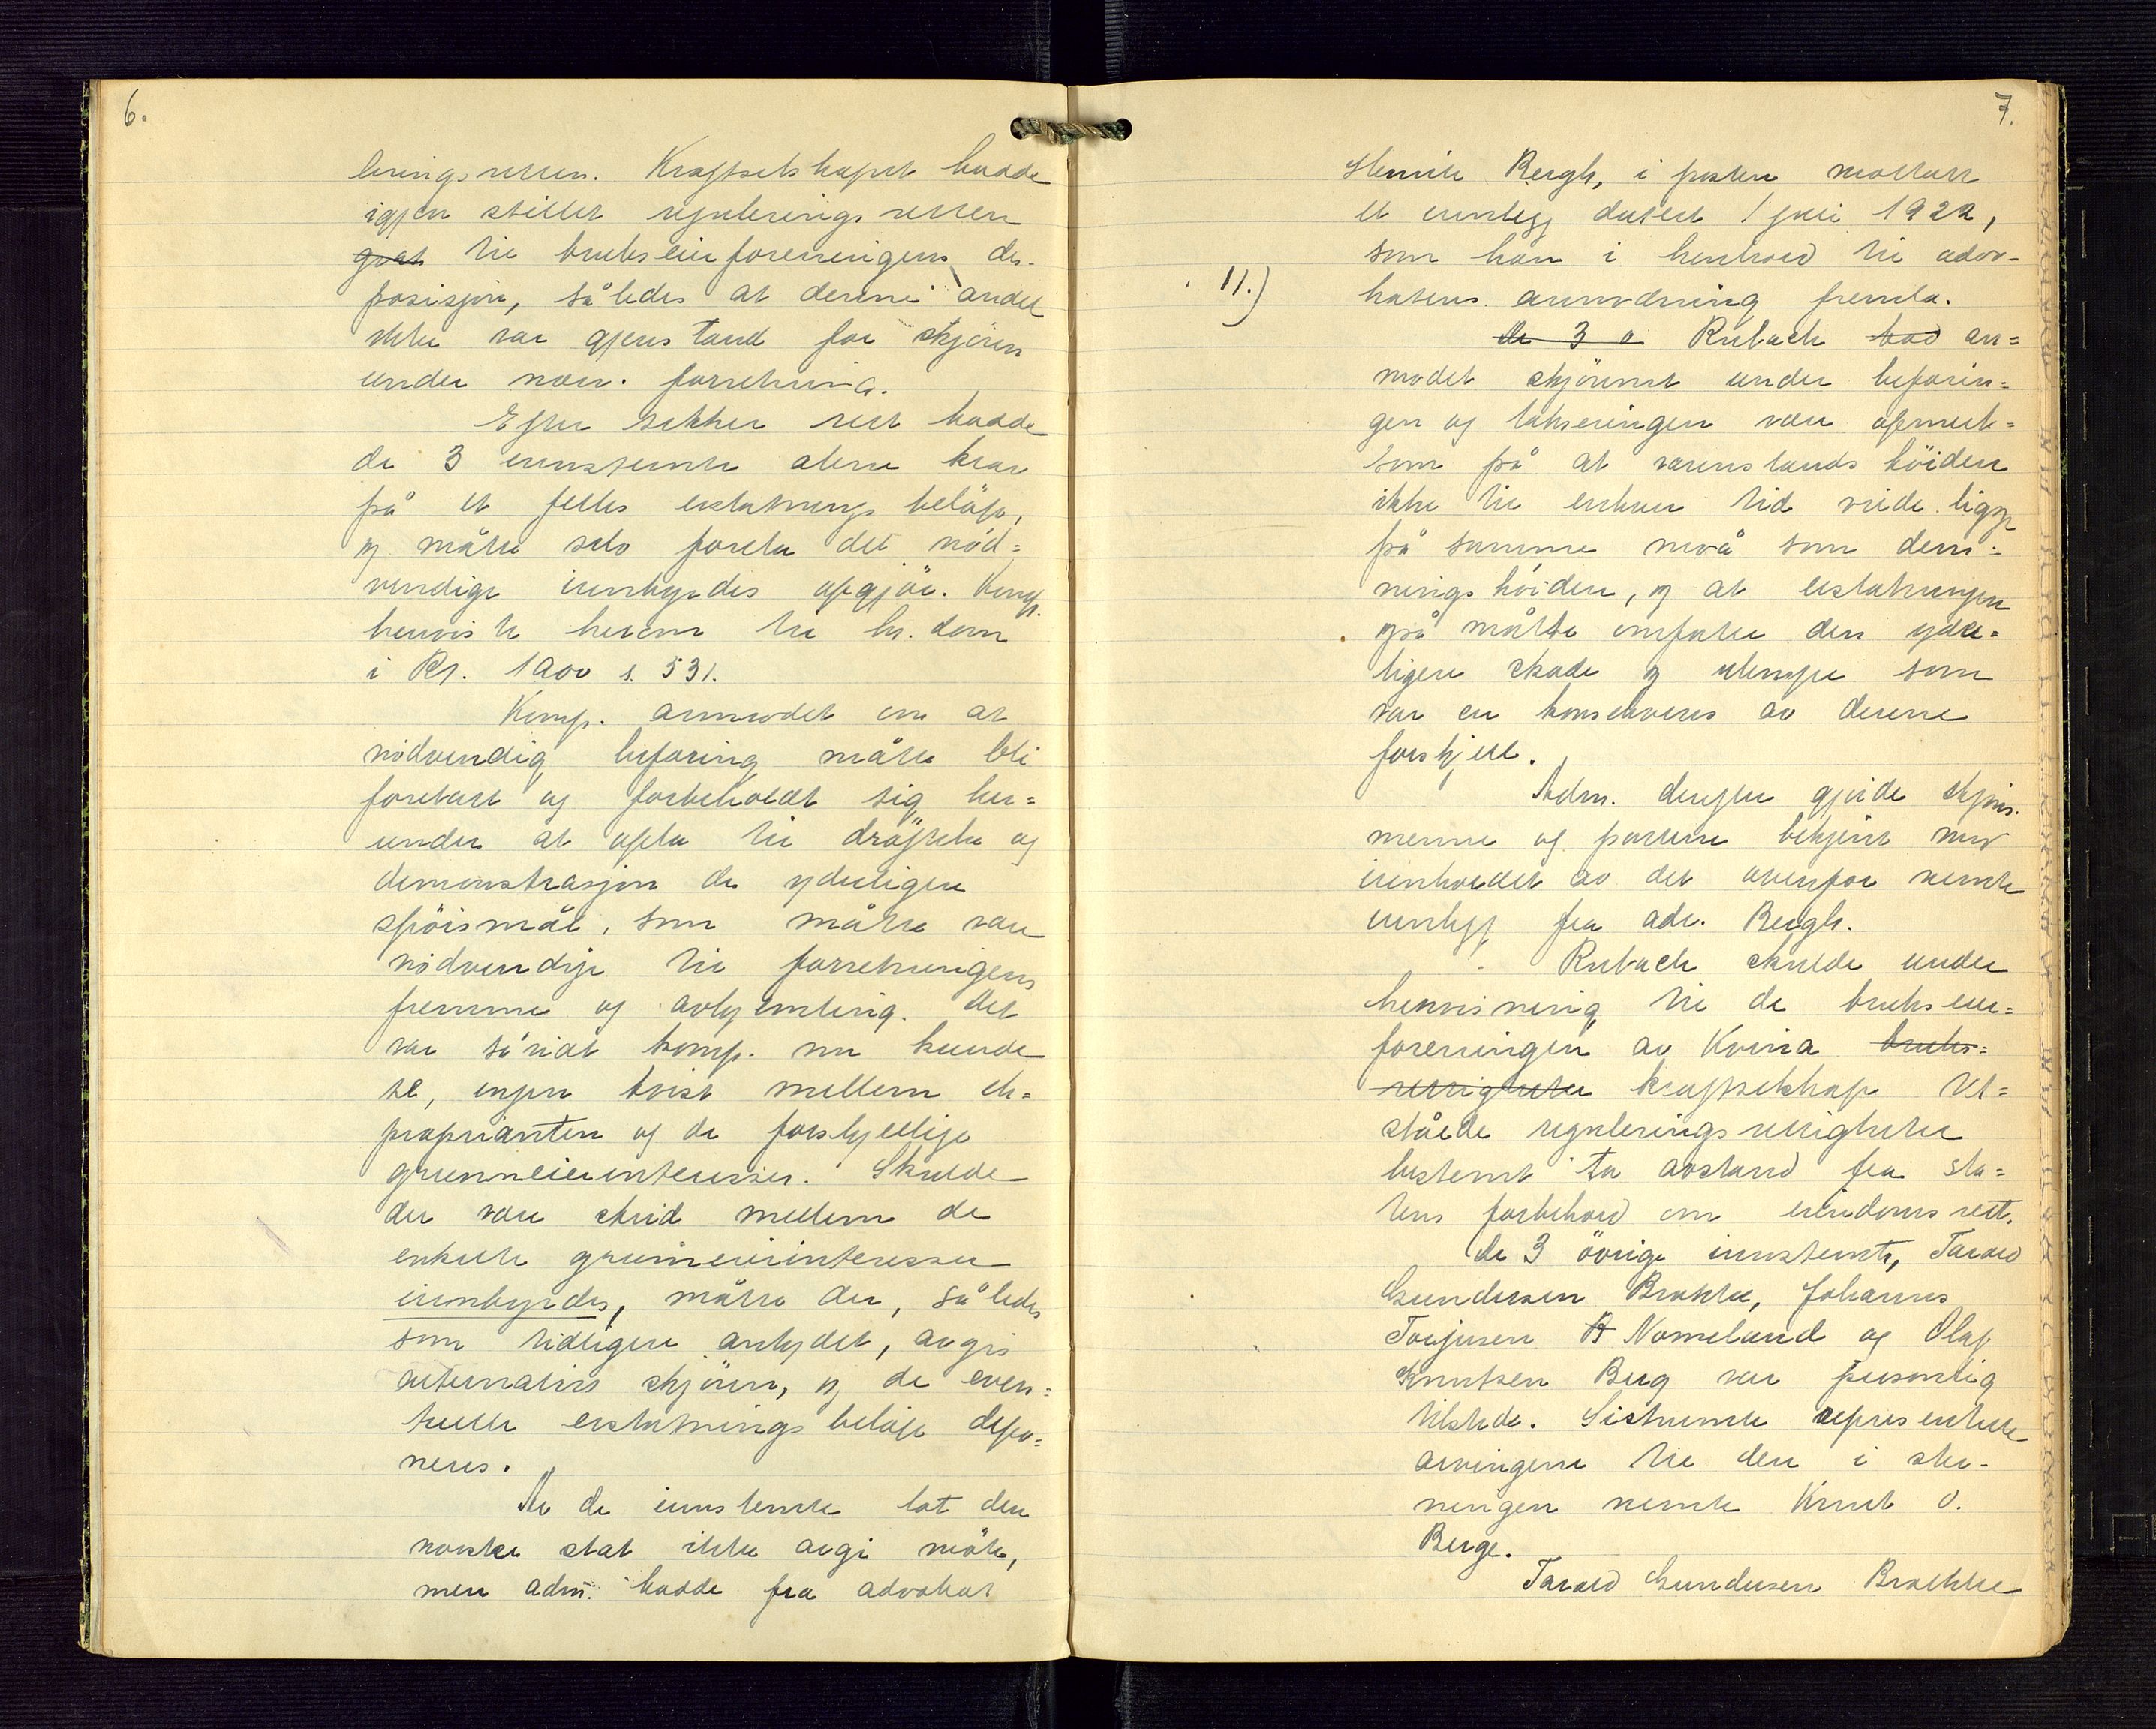 6.
leringsretten. Kraftselskapet hadde
igjen stillet reguleringsretten
grat til brukseierforeningens dis-
posisjon, således at denne andel
ikke var gjenstand for skjönn
under nær. forretning.
Efter sikker rett hadde
de 3 innstevnte alene krav
på et felles erstatnings belöp,
og måtte selv foreta det nöd=
vendige innbyrdes opgjör. Komp.
henviste herom til hr. dom
i Rt. 1900 s. 531.
Komp. anmodet om at
nödvendig befaring måtte bli
foretatt og forbeholdt sig her=
under at opta til dröftelse og
demonstrasjon de yderligere
spörsmål, som måtte være
nödvendige til forretningens
fremme og avhjemling. Det
var såvidt komp. nu kunde
se, ingen tvist mellem eks=
proprianten og de forskjellige
grunneierinteresser. Skulde
der være strid mellem de
enkelte grunneierinteresser
innbyrdes, måtte der, således
som tidligere antydet, avgis
alternativt skjönn, og de even=
tuelle erstatnings belöp depo=
neres.
Av de innstevnte lot den
norske stat ikke avgi möte,
men adm. hadde fra advokat
7.
Henrik Bergh, i posten mottatt
et innlegg datert 1 juli 1922,
som han i henhold til advo-
katens anmodning fremla.
11.)
de 3 Rubach bad an=
modet skjönnet under befarin=
gen og takseringen være opmerk=
som på at vannstands höiden
ikke til enhver tid vilde ligge
på samme nivå som dem=
nings höiden, og at erstatningen
også måtte omfatte den yder=
ligere skade og ulempe som
var en konsekvens av denne
forskjell.
Adm. derefter gjorde skjöns.
mennene og partene bekjent med
innholdet av det ovenfor nevnte
innlegg fra adv. Bergh.
Rubach skulde under
henvisning til de brukseier=
foreningen av Kvina bruks=
rettigheter kraftselskap til=
ståede regulerings rettigheter
bestemt ta avstand fra sta=
tens forbehold om eiendomsrett.
De 3 övrige innstevnte, Tarald
Gundersen Brokke, Johannes
Torjusen Nomeland og Olaf
Knutsen Berg var personlig
tilstede. Sistnevnte representerte
arvingene til den i stev-
ningen nevnte Knut O.
Berge.
Tarald Gundersen Brokke